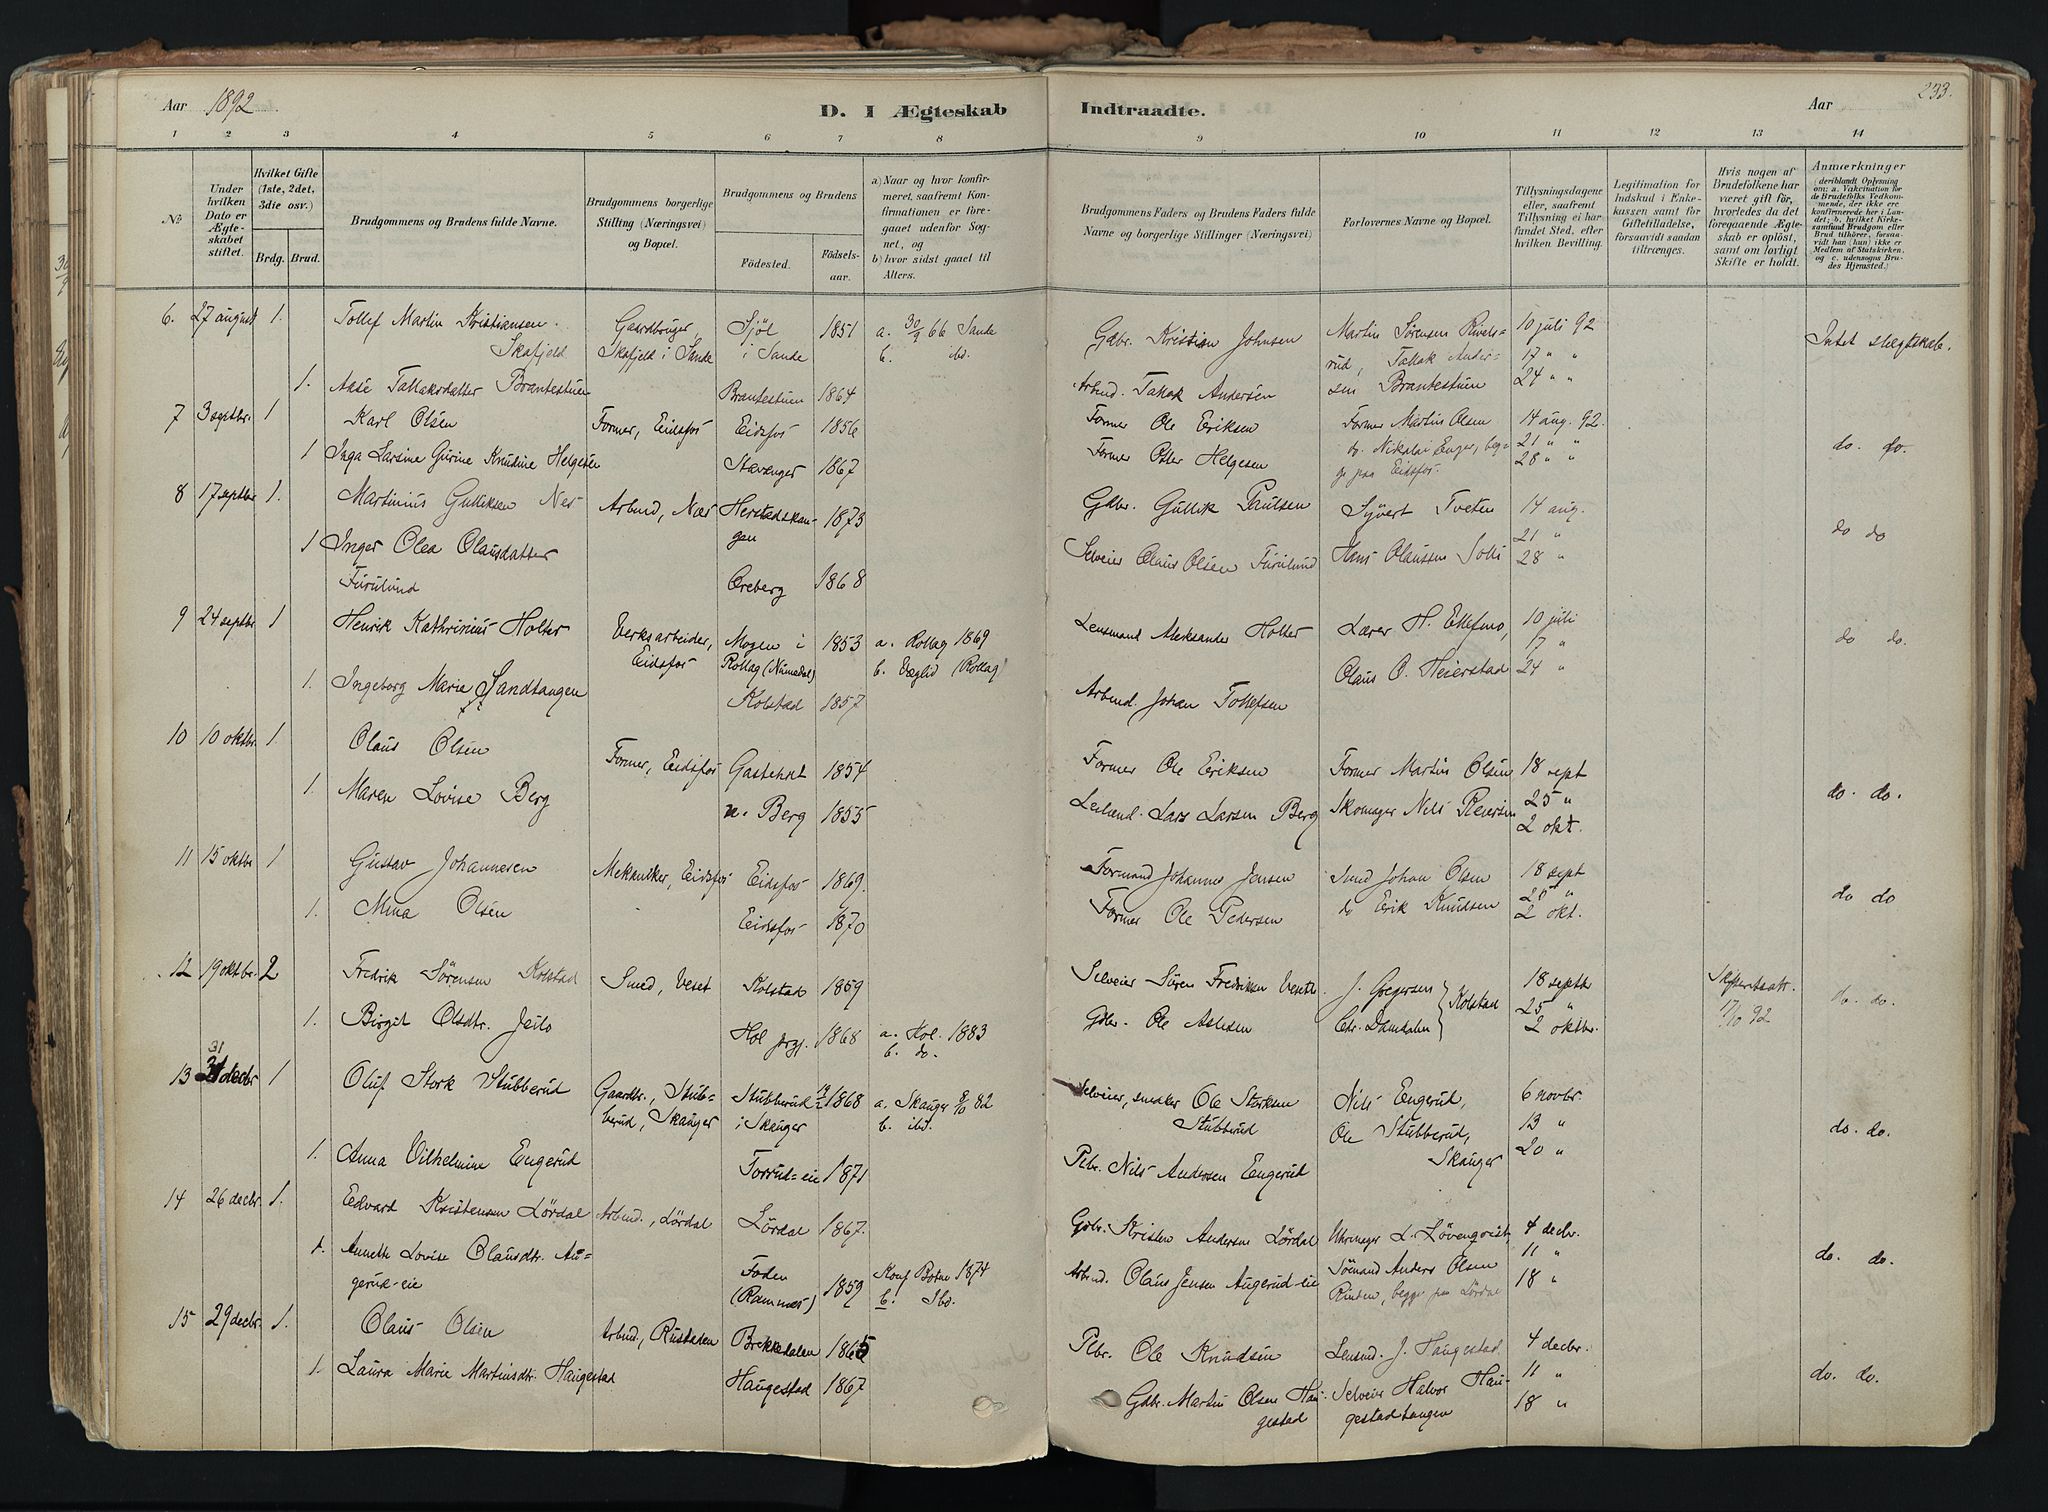 Aar 1892
D. I Ægteskab Indtraadte.
Aar
233.
1 2 3 4 5 6 7 8 9 10 11 12 13 14
No
Under hvilken Dato er Ægteskabet stiftet.
Hvilket Gifte (1ste, 2det, 3die osv.)
Brdg. Brud.
Brudgommens og Brudens fulde Navne.
Brudgommens borgerlige Stilling (Næringsvei) og Bopæl.
Brudgommens og Brudens
Fødested. Fødselsaar.
a) Naar og hvor konfirmeret, saafremt Konfirmationen er foregaaet udenfor Sognet, og
b) hvor sidst gaaet til Alters.
Brudgommens Faders og Brudens Faders fulde Navne og borgerlige Stillinger (Næringsvei)
Forlovernes Navne og Bopæl.
Tillysningsdagene eller, saafremt Tillysning ei har fundet Sted, efter hvilken Bevilling.
Legitimation for Indskud i Enkekassen samt for Giftetilladelse, forsaavidt saadan tiltrænges.
Hvis nogen af Brudefolkene har været gift før, hvorledes da det foregaaende Ægteskab er opløst, samt om lovligt Skifte er holdt.
Anmærkninger (deriblandt Oplysning om: a. Vakcination for de Brudefolks Vedkommende, der ikke ere konfirmerede her i Landet; b. hvilket Kirkesamfund Brudgom eller Brud tilhører, forsaavidt han (hun) ikke er Medlem af Statskirken, og c. udensogns Brudes Hjemsted.)
6. 27 august 1. Tollef Martin Kristiansen Skafjeld Gaardbruger, Skafjeld i Sande Sjöl i Sande 1851 a. 30/9 66 Sande b. ibd. Gdbr. Kristian Johnsen Martin Sörensen 10 juli 92 Intet slægtskab.
17 " "
1. Aase Tallaksdatter Brantestuen Brantestuen 1864 Arbmd. Tallak Andersen Tallak Andersen Brantestuen 24 " "
7 3 septbr. 1 Karl Olsen Former, Eidsfos Eidsfos 1856 Former Ole Eriksen Former Martin Olsen 14 aug. 92.
1 Inga Larsine Gurine Knudine Helgesen Stavanger 1867 Former Peter Helgesen do. Nikolai Enger, begge paa Eidsfos. 21 " " 28 " " do. do.
8 17 septbr 1. Martinius Gulliksen Nes Arbmd, Næs Herstadskangen 1873 Gdbr. Gullik Paulsen Syvert Tveten 14 aug.
21 " do do
1 Inger Olea Olausdatter Furulund Oreberg 1868 Selveier Olaus Olsen Furulund Hans Olaussen Solli 28 "
9 24 septbr 1 Henrik Kathrinius Holter Verksarbeider, Eidsfos Mogen i Rollag (Numedal) 1853 a. Rollag 1869 b. Væglid (Rollag) Lensmand Aleksander Holter Lærer H. 10 juli
17 " do do.
1. Ingeborg Marie Sandtangen Kolstad 1857 Arbmd. Johan Tollefsen Olaus O. Heierstad 24 "
10 10 oktbr. 1 Olaus Olsen Former, Eidsfos Gasteholt 1854 Former Ole Eriksen Former Martin Olsen 18 sept
1. Maren Lovise Berg n. Berg 1855 Leilænd. Lars Larsen Berg Skomager Nils Reiersen 25 " 2 okt. do. do.
11 15 oktbr 1 Gustav Johannesen Mekaniker, Eidsfos Eidsfos 1869. Formand Johannes Jensen Smed Johan Olsen 18 sept
1. Mina Olsen Eidsfos 1870 Former Ole Pedersen do Erik Knudsen 25 " 2 okt. do do
12 19 oktbr. 2 Fredrik Sörensen Kolstad Smed, Veset Kolstad 1859 Selveier Sören Fredriksen Veseth. J. Gregersen 18 septbr Skifteattest 17/10 92
1. Birgit Olsdtr. Jeilo Hol prgj. 1868 a. Hol. 1883 b. do. Gdbr. Ole Aslesen Chr. Damdalen Kolstad 25 " 2 oktbr. do. do.
13 31 decbr 1 Oluf Stork Stubberud Gaardbr., Stubberud, Skauger Stubberud i Skauger 1868 a. Skauger 8/10 82 b. ibd. Selveier, snedker Ole Storksen Stubberud Nils Engerud, 6 novbr.
Ole Stubberud, Skauger 13 " do. do.
1. Anna Vilhelmine Engerud Forrud-eie 1871 Plbr. Nils Andersen Engerud 20 "
14 26 decbr. 1. Edvard Kristensen Lördal Arbmd., Lördal Lördal 1867. Gdbr. Kristen Andersen Lördal Uhrmager L. Lövenqvist 4 decbr.
1. Annette Lovise Olausdtr. Augerud-eie Foden (Ramnes) 1859 Konf Botne 1874 b. Ibd. Arbmd. Olaus Jensen Augerud-eie Sömand Anders Olsen Rinden, begge paa Lördal 11 " 18 " do. do.
15 29 decbr. 1. Olaus Olsen Arbmd, Rustaden Brekkedalen 1865 Plbr. Ole Knudsen Lensmd. J. Haugestad 4 decbr.
1. Laura Marie Martinsdtr. Haugestad Haugestad 1867 Gdbr. Martin Olsen Haugestad Selveier Halvor Haugestadtangen 11 " 18 " do. do.